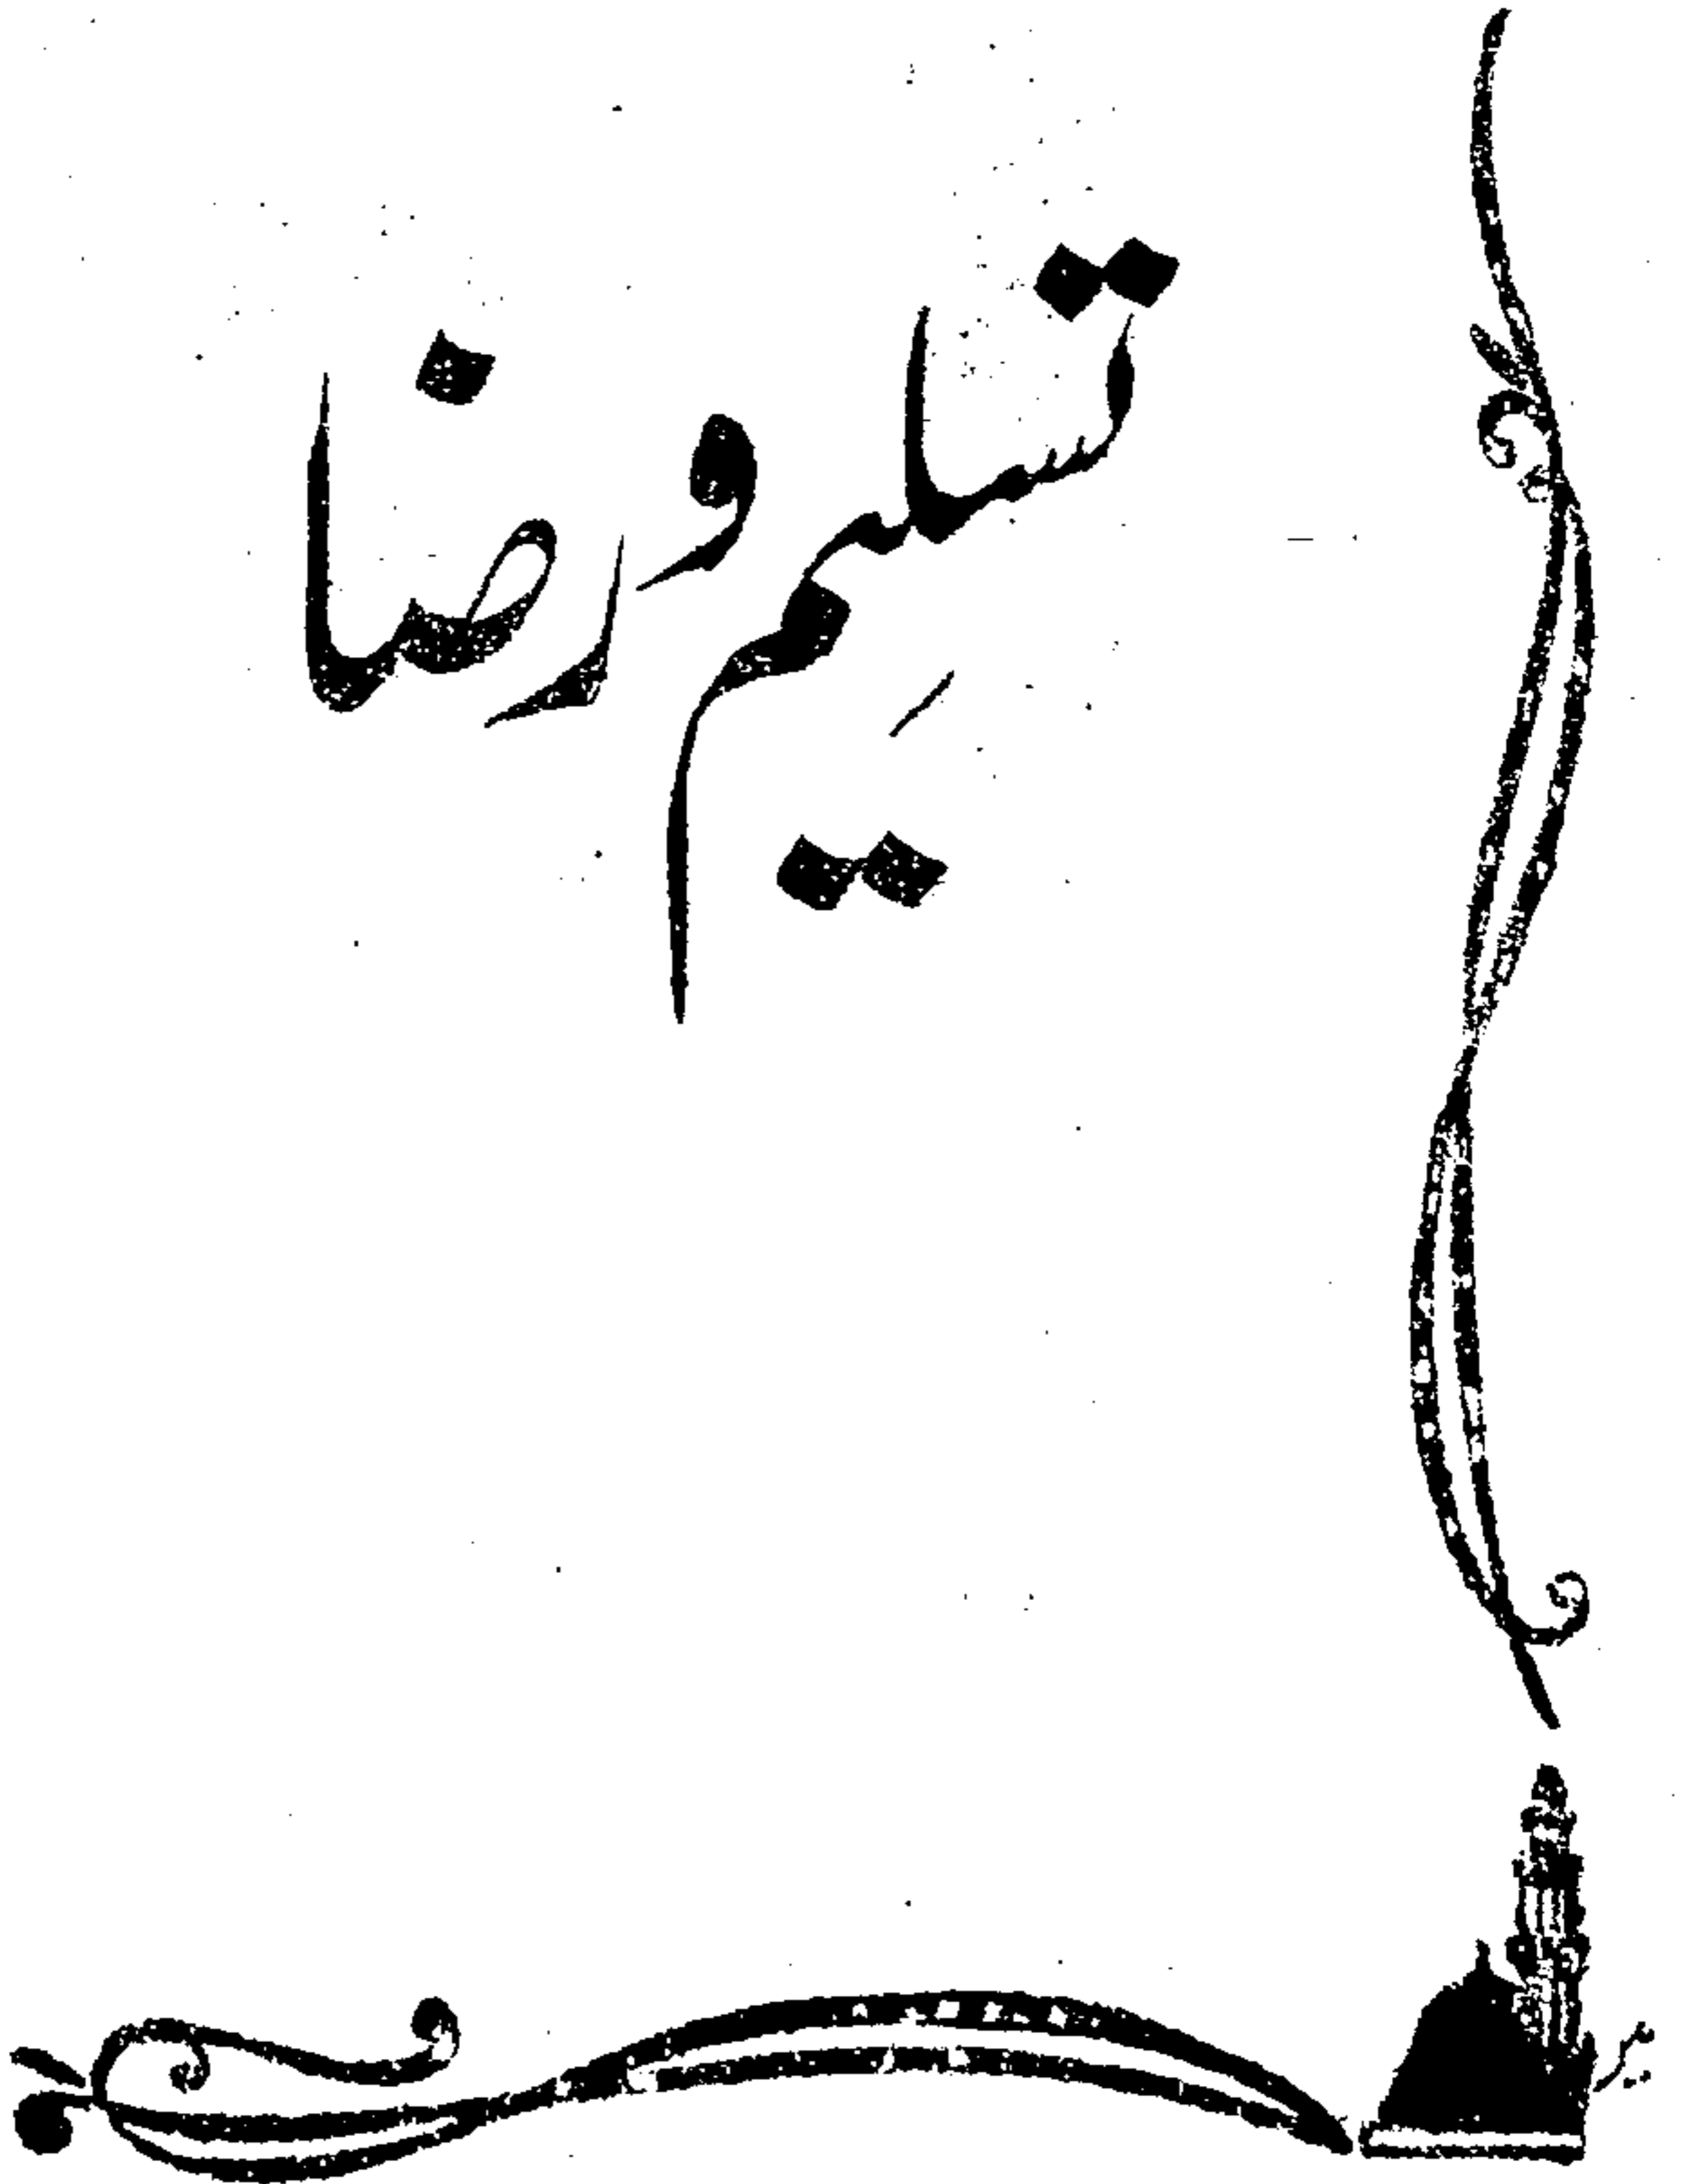 تسلیم و رضا